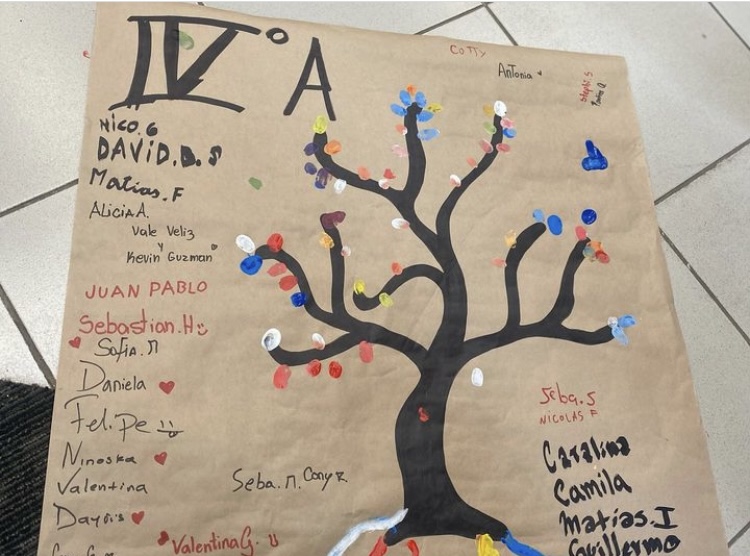 IV° A
Cotty
Antonia
Stephi.S
NICO.G
DAVID.B.S
Matias.F
Alicia A.
Vale Veliz
y
Kevin Guzman
JUAN PABLO
Sebastian.H
Sofia.M
Daniela
Felipe
Ninoska
Valentina
Seba.M. Cony R
ValentinaG.
Seba.S
NICOLAS F
Catalina
Camila
Matias.I
Guillermo